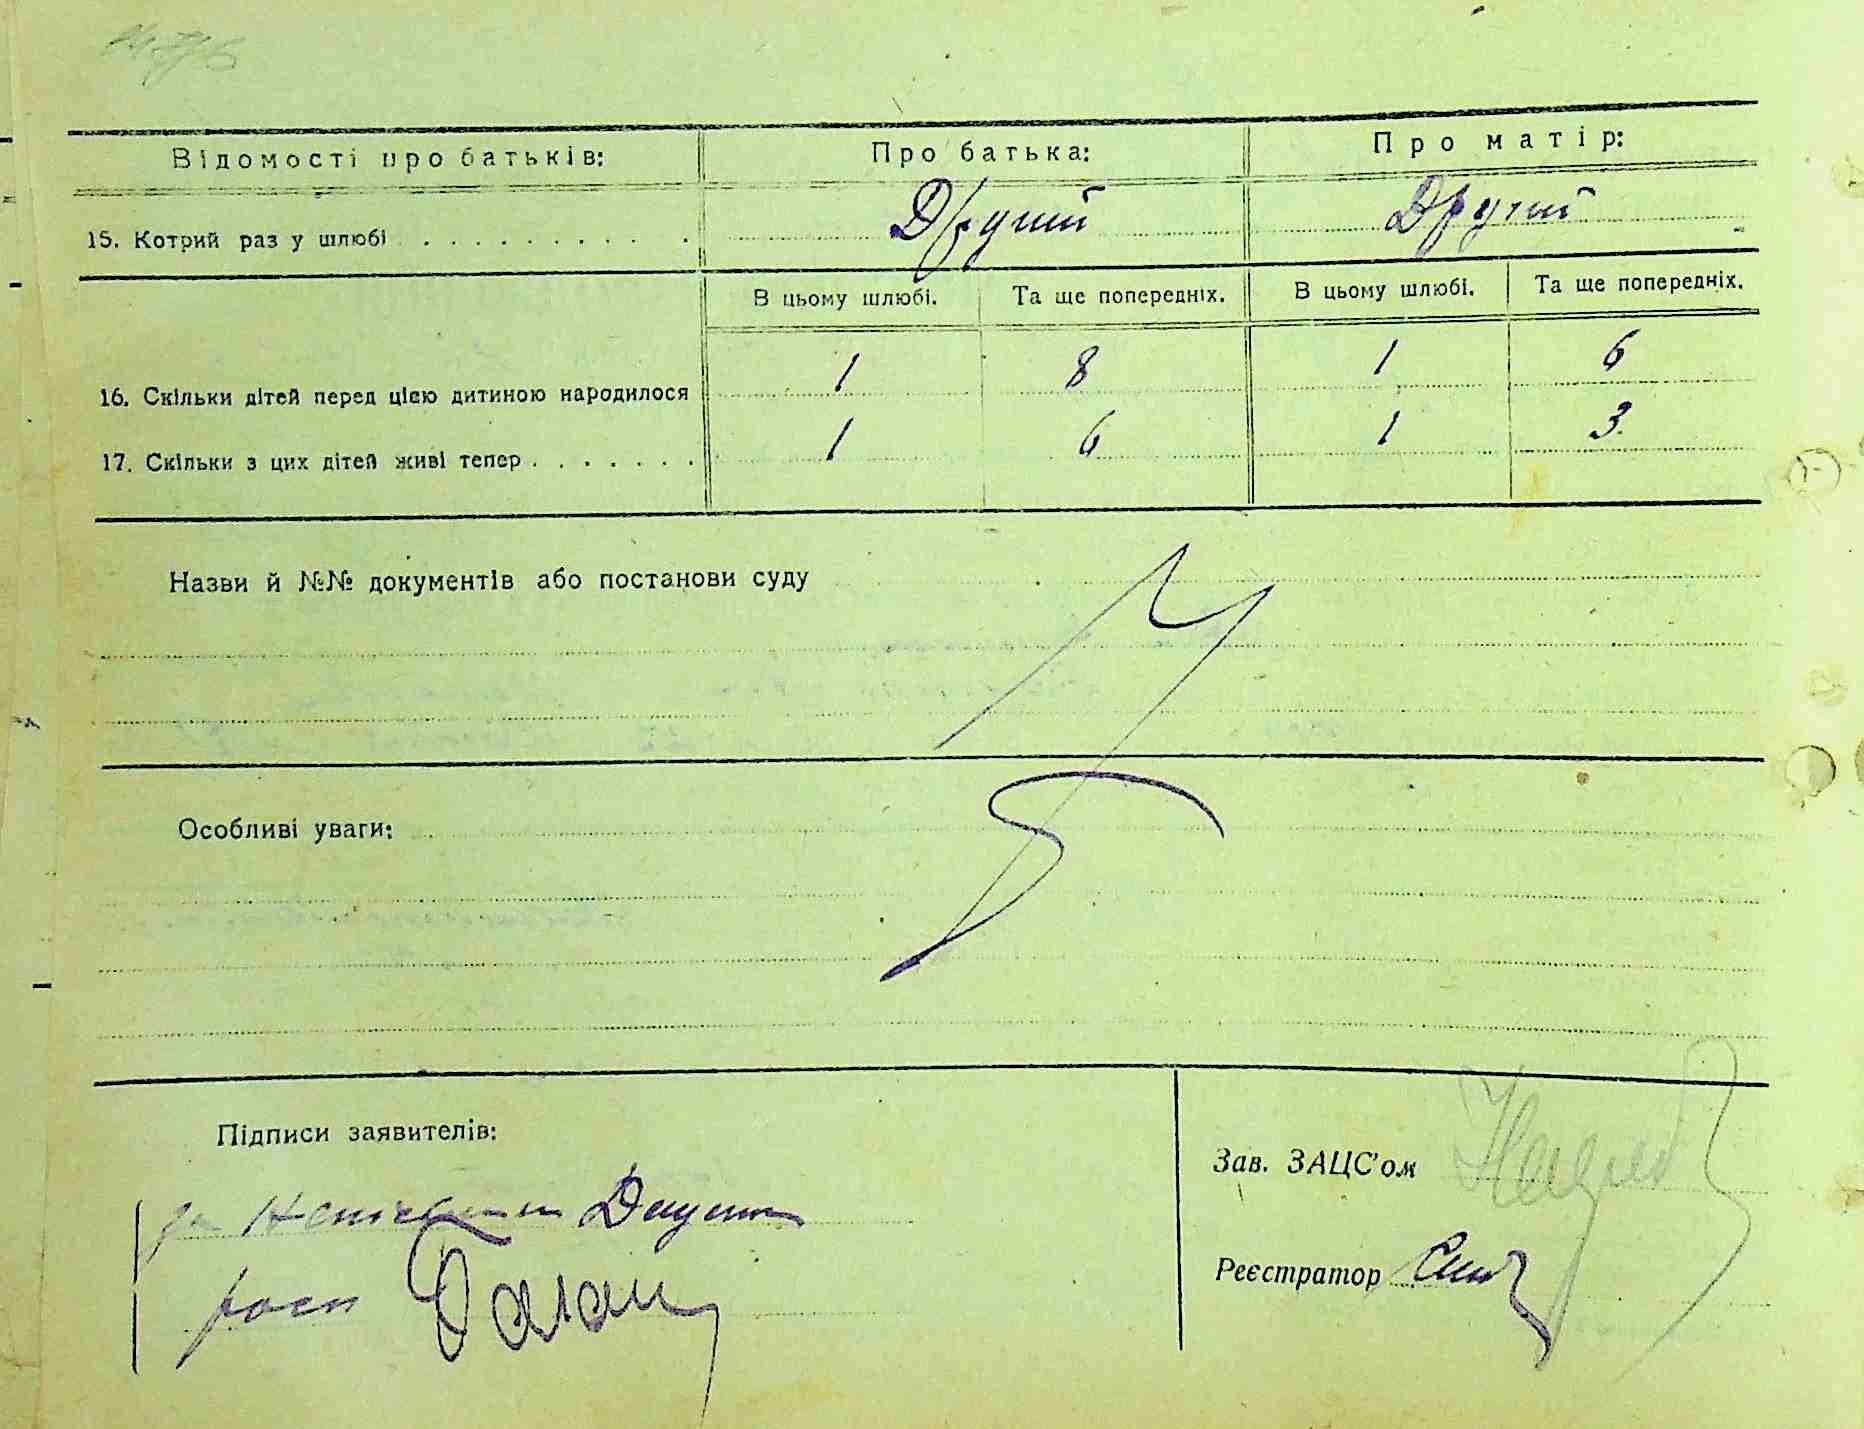 Відомості про батьків: Про батька: Про матір:
15. Котрий раз у шлюбі Другий Другий
В цьому шлюбі. Та ще попередніх. В цьому шлюбі. Та ще попередніх.
16. Скільки дітей перед цією дитиною народилося 1 8 1 6
17. Скільки з цих дітей живі тепер 1 6 1 3
Назви й №№ документів або постанови суду
Особливі уваги:
Підписи заявителів:
Зав. ЗАЦС'ом
за
Реєстратор